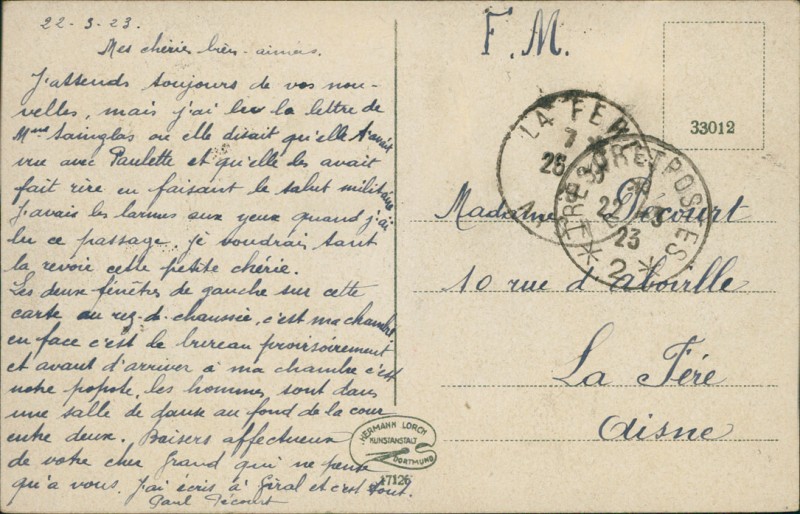 22-3-23.
Mes chéries bien-aimées.
J'attends toujours de vos nou-
velles, mais j'ai lu la lettre de
Mme Sainglas où elle disait qu'elle t'avait
vue avec Paulette et qu'elle les avait
fait rire en faisant le salut militaire
J'avais les larmes aux yeux quand j'ai
lu ce passage. Je voudrais tant
la revoir cette petite chérie.
Les deux fenêtres de gauche sur cette
carte au rez-d-chaussée, c'est ma chambre
en face c'est le bureau provisoirement
et avant d'arriver à ma chambre c'est
notre popote, les hommes sont dans
une salle de danse au fond de la cour
entre deux. Baisers affectueux
de votre cher Grand qui ne pense
qu'a vous. J'ai écris à Giral et c'est tout.
Paul Décourt
F.M.
33012
LA FERE
TRESOR ET POSTES
22 -3
23
* 2 *
Madame Décourt
10 rue d'Aboville
La Fére
Aisne
HERMANN LORCH
KUNSTANSTALT
DORTMUND
17126